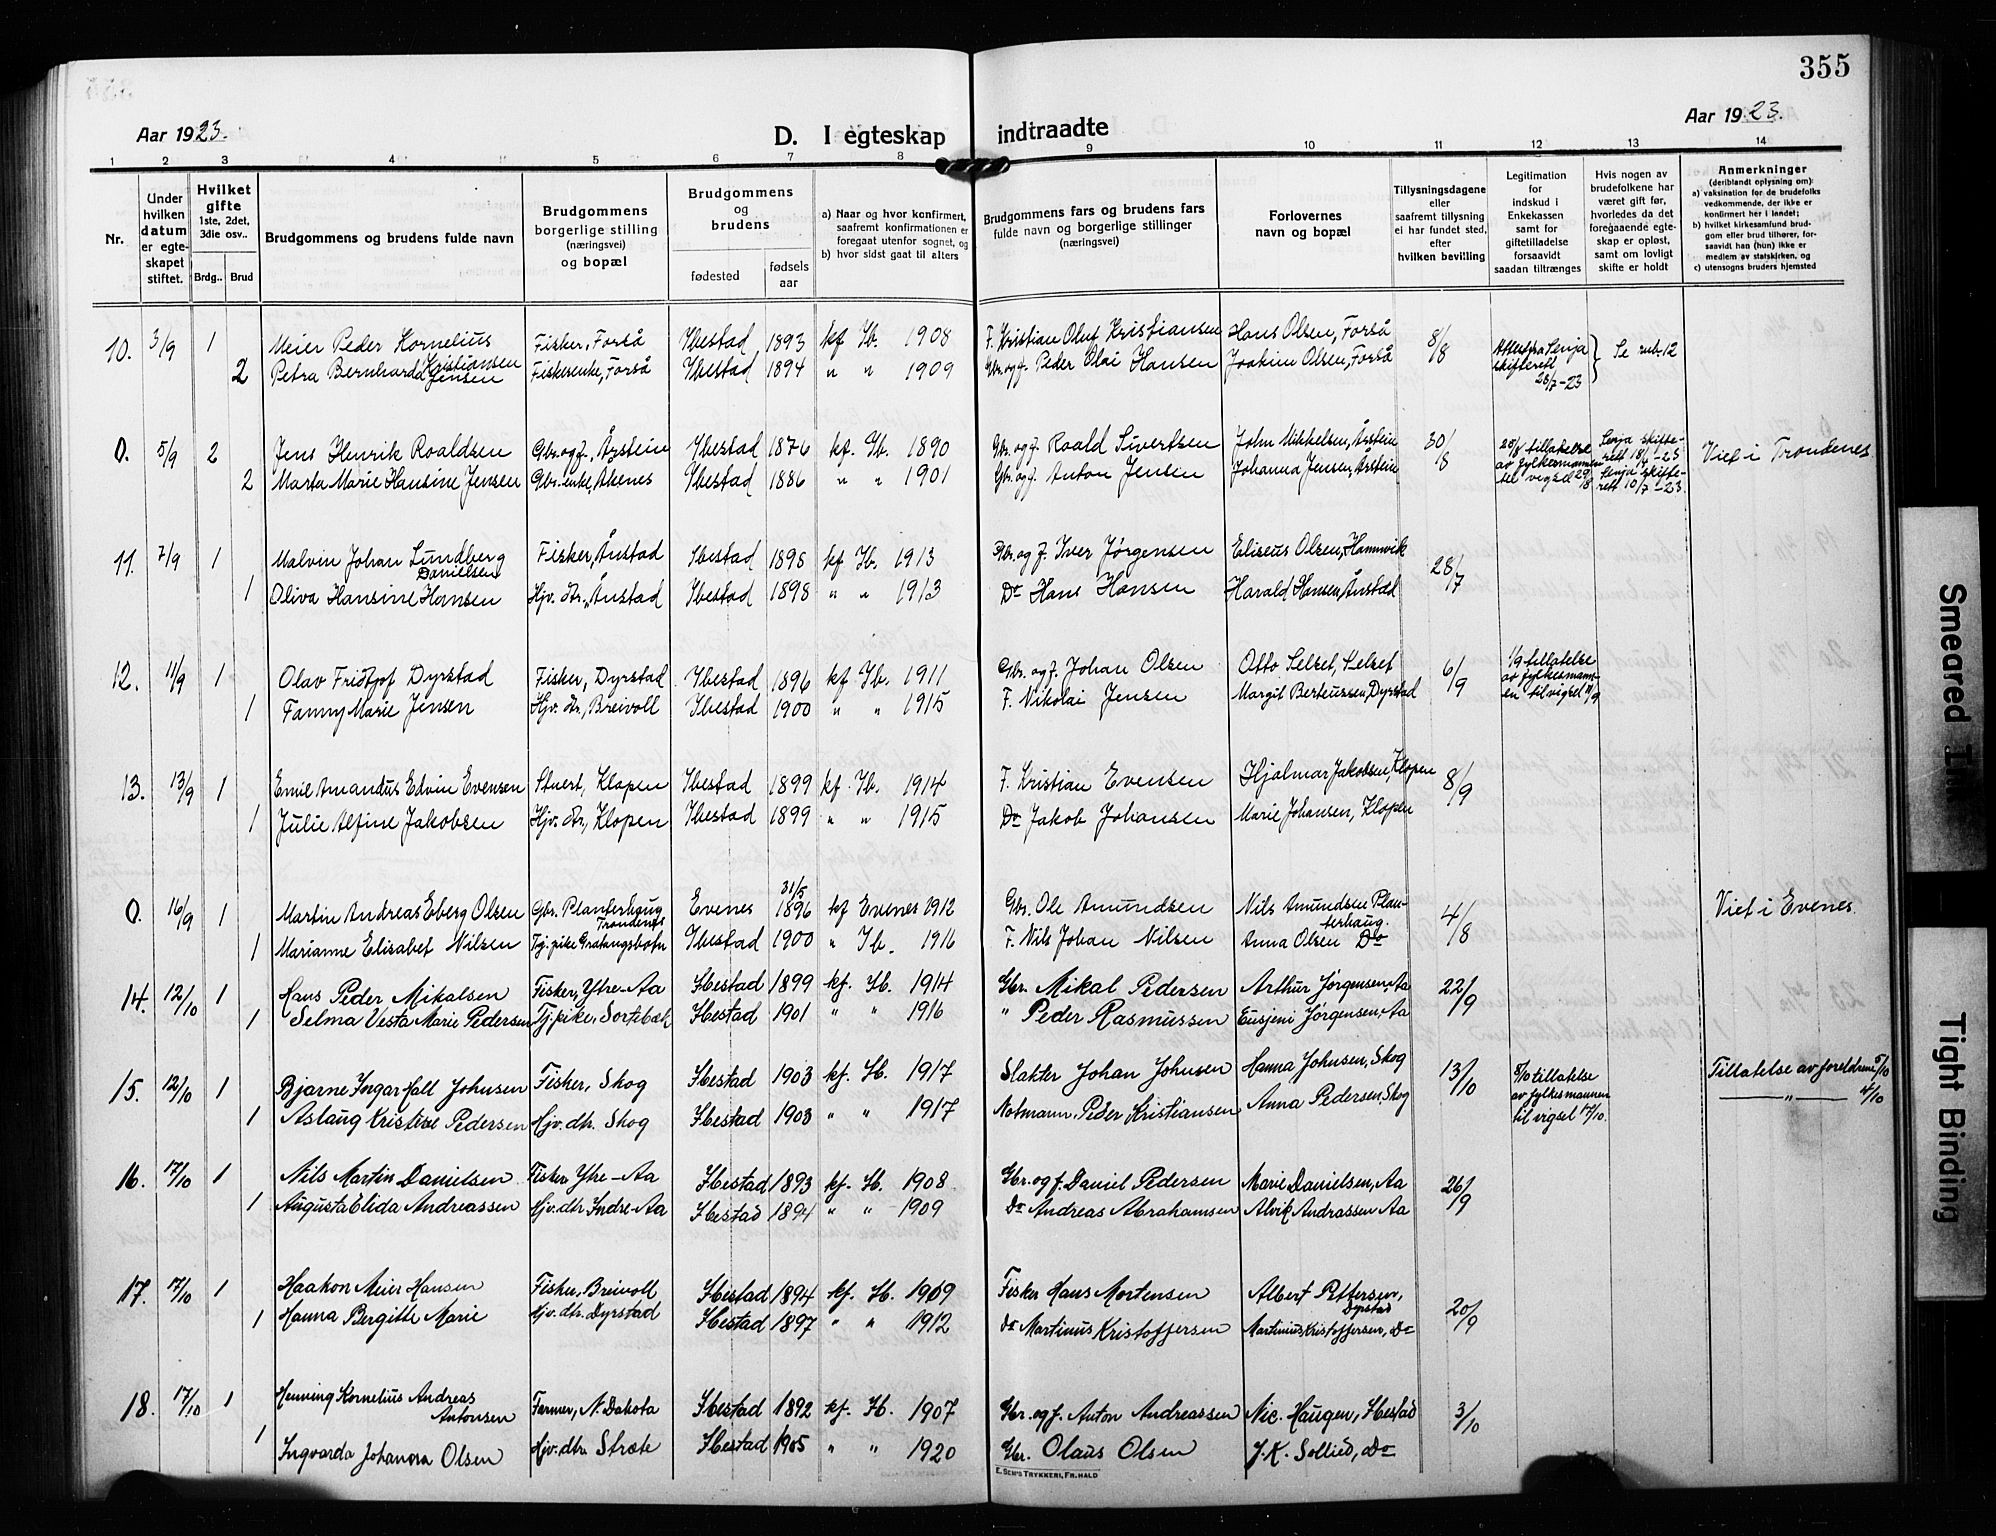 355
Aar 1923.
D. I egteskap indtraadte
Aar 1923.
1 2 3 4 5 6 7 8 9 10 11 12 13 14
Nr.
Under hvilken datum er egteskapet stiftet.
Hvilket gifte 1ste, 2det, 3die osv..
Brdg..
Brud
Brudgommens og brudens fulde navn
Brudgommens borgerlige stilling (næringsvei) og bopæl
Brudgommens og brudens
fødested
fødsels aar
a) Naar og hvor konfirmert, saafremt konfirmationen er foregaat utenfor sognet, og
b) hvor sidst gaat til alters
Brudgommens fars og brudens fars fulde navn og borgerlige stillinger (næringsvei)
Forlovernes navn og bopæl
Tillysningsdagene eller saafremt tillysning ei har fundet sted, efter hvilken bevilling
Legitimation for indskud i Enkekassen samt for giftetilladelse forsaavidt saadan tiltrænges
Hvis nogen av brudefolkene har været gift før, hvorledes da det foregaaende egteskap er opløst, samt om lovligt skifte er holdt
Anmerkninger
(deriblandt oplysning om)
a) vaksination for de brudefolks vedkommende, der ikke er konfirmert her i landet;
b) hvilket kirkesamfund brudgom eller brud tilhører, forsaavidt han (hun) ikke er medlem av statskirken, og
c) utensogns bruders hjemsted
10. 3/9 1 Meier Peder Kornelius Kristiansen Fisker, Forså Ibestad 1893 kf Ib. 1908 F. Kristian Oluf Kristiansen Hans Olsen, Forså 8/8 Attest fra Senja skifterett 28/7-23 Se rub. 12
2 Petra Bernharda Jensen Fiskerenke, Forså Ibestad 1894 " " 1909 Gbr. og f. Peder Olai Hansen Joakim Olsen, Forså
0. 5/9 2 Jens Henrik Roaldsen Gbr. og f., Årstein Ibestad 1876 kf. Ib. 1890 Gbr. og f. Roald Sivertsen John Mikkelsen, Årstein 30/8 29/8 tillatelse av fylkesmannen til vigsel 29/8 Senja skifterett 18/6-23 Viet i Trondenes
2 Marta Marie Hansine Jensen Gbr. enke, Åkenes Ibestad 1886 " " 1901 Gbr. og f. Anton Jensen Johanna Jensen, Årstein Senja skifterett 10/7-23.
11. 7/9 1 Malvin Johan Lundberg Danielsen Fisker, Ånstad Ibestad 1898 kf Ib. 1913 Gbr. og f. Iver Jørgensen Eliseus Olsen, Hamnvik 28/7
1 Oliva Hansine Hansen Hjv. dtr., Ånstad Ibestad 1898 " " 1913 Do Hans Hansen Harald Hansen, Ånstad
12. 11/9 1 Olav Fridtjof Dyrstad Fisker, Dyrstad Ibestad 1896 kf Ib. 1911 Gbr. og f. Johan Olsen Otto Selset, Selset 6/9 1/9 tillatelse av fylkesmannen til vigsel 11/9
1 Fanny Marie Jensen Hjv. dtr., Breivoll Ibestad 1900 " " 1915 F. Nikolai Jensen Margit Berteussen, Dyrstad
13. 13/9 1 Emil Amandus Edvin Evensen Stuert, Klopen Ibestad 1899 kf. Ib. 1914 F. Kristian Evensen Hjalmar Jakobsen, Klopen 8/9
1 Julie Alfine Jakobsen Hjv. dtr., Klopen Ibestad 1899 " " 1915 Do Jakob Johansen Marie Johansen, Klopen
0. 16/9 1 Martin Andreas Eberg Olsen Gbr. Planterhaug Trondenes Evenes 31/5 1896 kf Evenes 1912 Gbr. Ole Amundsen Nils Amundsen Planterhaug. 4/8 Viet i Evenes.
1 Marianne Elisabet Nilsen Tj. pike Gratangsbotn Ibestad 1900 " Ib. 1916 F. Nils Johan Nilsen Anna Olsen Do
14. 12/10 1 Hans Peder Mikalsen Fisker, Ytre-Aa Ibestad 1899 kf. Ib. 1914 Gbr. Mikal Pedersen Arthur Jørgensen, Aa 22/9
1 Selma Vesta Marie Pedersen Tj. pike, Sortebæk Ibestad 1901 " " 1916 " Peder Rasmussen Eusjeni Jørgensen, Aa
15. 12/10 1 Bjarne Ingar Hall Johnsen Fisker, Skog Ibestad 1903 kf. Ib. 1917 Slakter Johan Johnsen Hanna Johnsen, Skog 13/10 5/10 tillatelse av fylkesmannen til vigsel 17/10. Tillatelse av foreldrene 5/10
1 Aslaug Kristine Pedersen Hjv. dtr. Skog Ibestad 1903 " " 1917 Notmann, Peder Kristiansen Anna Pedersen, Skog " 4/10
16. 17/10 1 Nils Martin Danielsen Fisker Ytre-Aa Ibestad 1893 kf. Ib. 1908 Gbr. og f. Daniel Pedersen Marie Danielsen, Aa 26/9
1 Augusta Elida Andreassen Hjv. dtr Indre-Aa Ibestad 1894 " " 1909 Do Andreas Abrahamsen Alvik Andrassen Aa
17. 17/10 1 Haakon Meier Hansen Fisker, Breivoll Ibestad 1894 kf. Ib. 1909 Fisker Hans Mortensen Albert Pettersen, Dyrstad 20/9
1 Hanna Bergitte Marie Hjv. dtr. Dyrstad Ibestad 1897 " " 1912 Do Martinus Kristoffersen Martinus Kristoffersen, Do
18. 17/10 1 Henning Kornelius Andreas Antonsen Farmer, N. Dakota Ibestad 1892 kf. Ib. 1907 Gbr. og f. Anton Andreassen Nic. Haugen, Ibestad 3/10
1 Ingvarda Johanna Olsen Hjv. dtr. Stræte Ibestad 1905 " " 1920 Gbr. Olaus Olsen J. K. Sollied, Do
E. SEM'S TRYKKERI, FR.HALD
Smeared Ink
Tight Binding